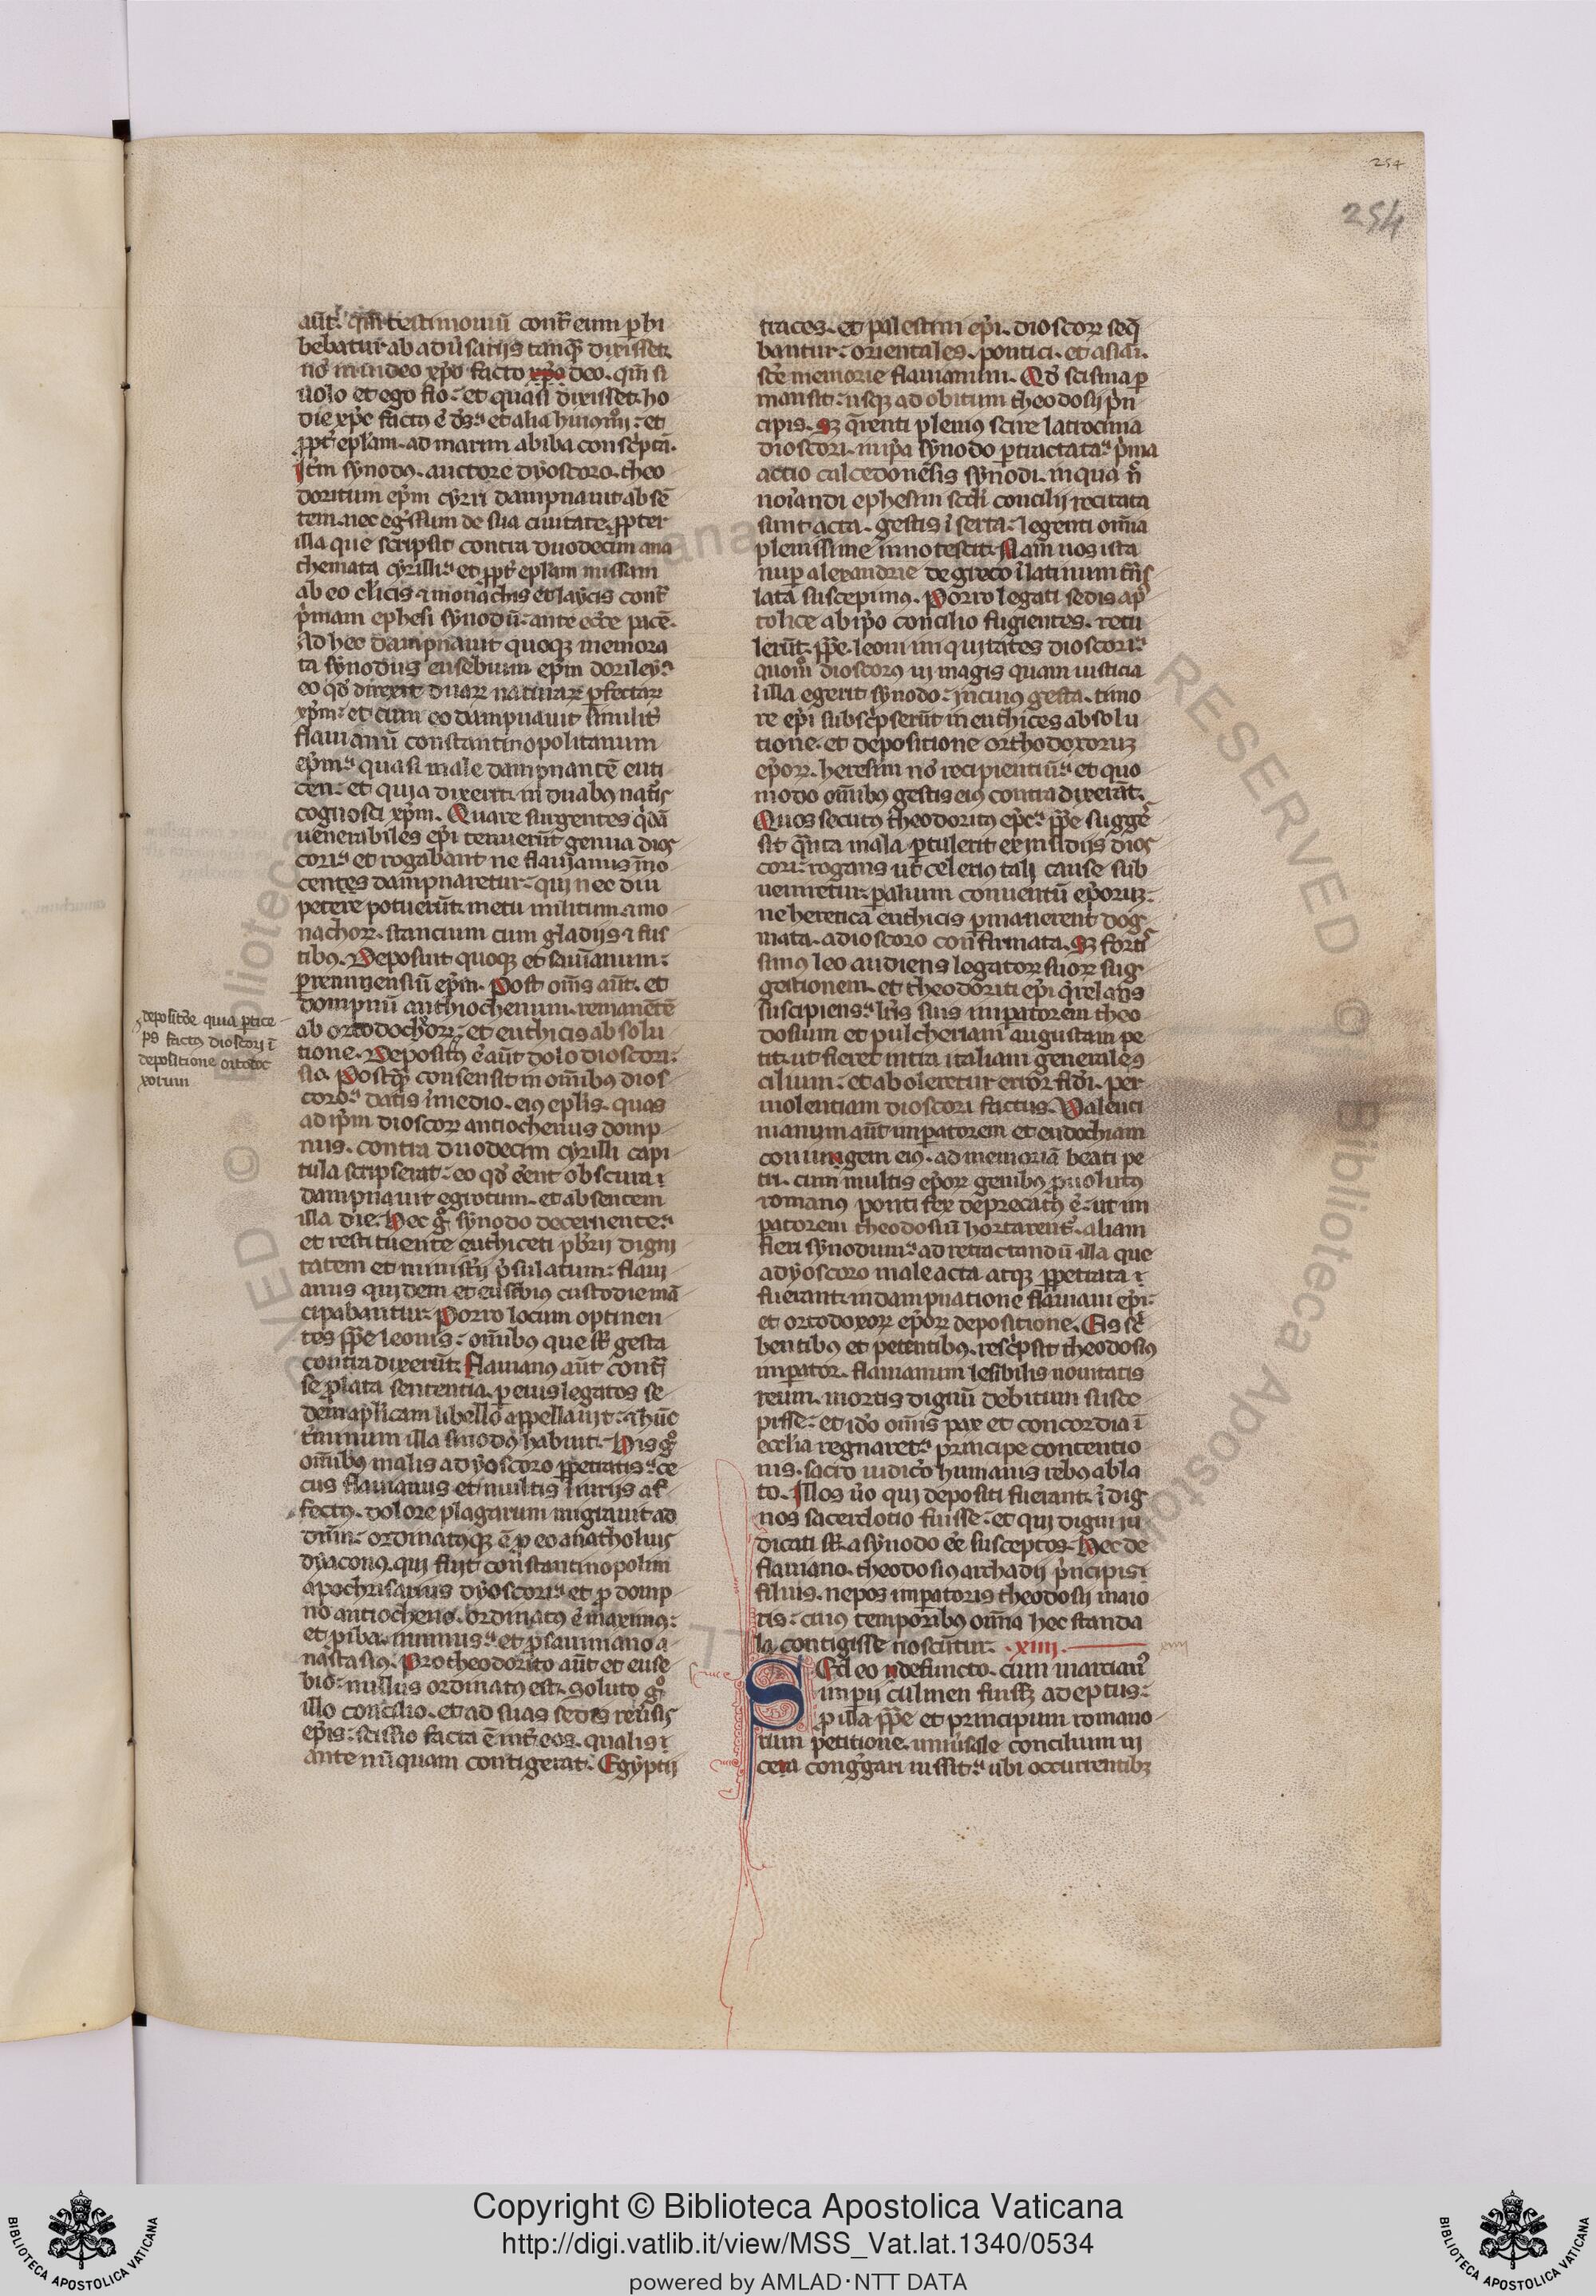 254
254
aūt. qm̄ testimoniū cont̄ eum phi
bebatur ab adūsarijs tanq̄ dixisset.
nō inuideo xpō facto deo. qm̄ si
uolo et ego fio. et quasi dixisset. ho
die xpc factus ē ds. et alia huiusmōi. et
ppt̄ epłam ad marim abiba conscptā.
Itm̄ synodus auctore dyoscoro. theo
doritum epm̄ cyrri dampnauit absē
tem. nec egssum de sua ciuitate. ppter
illa que scripsit contra duodecim ana
themata cyrilli. et ppt̄ epłam missam
ab eo cłicis ⁊ monachis et laycis cont̄
pmam ephesi synodū. ante ecce pacē.
Ad hec dampnauit quoqȝ memora
ta synodus eusebium epm̄ dorileȳ.
eo qd̄ dixerit duaꝝ natuaꝝ pfectaꝝ
xpm̄. et cum eo dampnauit similit̄
flauianū constantinopolitanum
epm̄. quasi male dampnantē euti
cen. et quia dixerit in duabus nat̄is
cognosci xpm̄. Quare surgentes qdā
uenerabiles epi tenuerūt genua dios
cori. et rogabant ne flauianus īno
centes dampnaretur. qui nec diu
petere potuerūt. metu militum ⁊ mo
nachoꝝ. stancium cum gladijs ⁊ fus
tibus. Deposuit quoqȝ et sauianum.
perennensiū epm̄. Post om̄s aūt. et
dompnū anthiochenum. remanētē
ab ortodochoꝝ. et euthicis absolu
tione. Depositus ē aūt dolo dioscori.
sic. Postq̄ consensit in om̄ibus dios
coro. datis ī medio. eius epłis. quas
ad ipm̄ dioscoꝝ antiochenus domp
nus. contra duodecim cyrilli capi
tula scripserat. eo qd̄ eent obscura.
dampnauit egrotum. et absentem
illa die. Hec g synodo decernente.
et restituente euthiceti pbrij digni
tatem et ministij psulatum. flaui
anus quidem et eusebius custodie mā
cipabantur. Porro locum optinen
tes ppe leonis. om̄ibus que sť gesta
contra dixerūt. flauianus aūt contra
se plata sententia. p eius legatos se
dem aplicam libello appellauit. ⁊ hūc
t̄minum illa sinodus habuit. His g
om̄ibus malis a dyoscoro ppetratis. ce
cus flauianus et multis iniurijs af
fectus. dolore plagarum migrauit ad
dn̄m. ordinatusqȝ ē p eo anatholius
dyaconus. qui fuit constantinopolim
apochrisarius dyoscori. et p domp
no antiocheno. ordinatus ē maximus.
et p iba. nunnus. et p sauimano a
nastasius. Pro theodorito aūt et euse
bio. nullus ordinatus est. Soluto g
illo concilio. et ad suas sedes reuisis
epis. scissio facta ē int̄ eos. qualis
ante nūquam contigerat. Egyptij
depositōe quia ptice
ps factus dioscori ī
depositione ortodoc
xorum
traces. et palestini epi. dioscoꝝ seq̄
bantur. orientales. pontici. et asiani.
scē memorie flauianum. Qd̄ scisma p
mansit. usqȝ ad obitum theodosij pn
cipis. Sȝ qrenti plenius scire latrocinia
dioscori. in ipa synodo ptractata. pma
actio calcedonēsis synodi. in qua n̄
noīandi ephesin scdi concilij recitata
sunt acta. gestis īserta. legenti om̄ia
plenissime innotescit. Nam nos ista
nup alexandrie de greco ī latinum t̄ns
lata suscepimus. Porro legati sedis ap
tolice ab ipo concilio fugientes. retu
lerūt. ppe. leoni iniquitates dioscori.
quom̄ dioscorus ui magis quam iusticia
ī illa egerit synodo. in cuius gesta. timo
re epi subscpserūt in euthices absolu
tione. et depositione orthodoxoruȝ
epoꝝ. heresim nō recipientiū. et quo
modo om̄ibus gestis eius contra dixerāt.
Quos secutus theodoritus epc. ppe sugge
sit qnta mala ptulerit ex insidijs dios
cori. rogans ut celerius tali cause sub
ueniretur. p alium conuentū eporuȝ.
ne heretica euthicis pmanerent dog
mata. a dioscoro confirmata. Sȝ forti
simus leo audiens legatoꝝ suoꝝ sug
gestionem. et theodoriti epi qrelas
suscipiens. lris suis impatorem theo
dosium et pulcheriam augustam pe
tit. ut fieret intra italiam generales
cilium. et aboleretur error fidi. per
uiolentiam dioscori factus. Valenti
nianum aūt impatorem et eudochiam
coniungem eius. ad memoriā beati pe
tri. cum multis epoꝝ genibus puolutus
romanus pontifex deprecatus ē. ut im
patorem theodosiū hortarent̄. aliam
fieri synodum. ad retractandū illa que
a dyoscoro male acta atqȝ ppetrata
fuerant. in dampnatione flauiani epi.
et ortodoxoꝝ epoꝝ depositione. Eis scri
bentibus et petentibus. rescpsit theodosius
impator. flauianum lesibilis nouitatis
reum. mortis dignū debitum susce
pisse. et ido om̄is pax et concordia ī
ecclia regnaret. principe contentio
nis. sacro iudicio humanis rebus abla
to. Illos uo qui depositi fuerant. īdig
nos sacerdotio fuisse. et qui digni iu
dicati sť a synodo ee susceptos. Hec de
flauiano. theodosius archadij pncipis
filius. nepos impatoris theodosij maio
ris. cuius temporibus om̄ia hec standa
la contigisse noscūtur. .xiiij.
xiiij
SEd eo defuncto. cum marcian̄
impij culmen fuissȝ adeptus.
p illa ppe et principum romano
rum petitione. uniūsale concilium ni
cena congregari iussit. ubi occurrentibȝ
Copyright © Biblioteca Apostolica Vaticana
http://digi.vatlib.it/view/MSS_Vat.lat.1340/0534
powered by AMLAD·NTT DATA
BIBLIOTECA APOSTOLICA VATICANA
BIBLIOTECA APOSTOLICA VATICANA